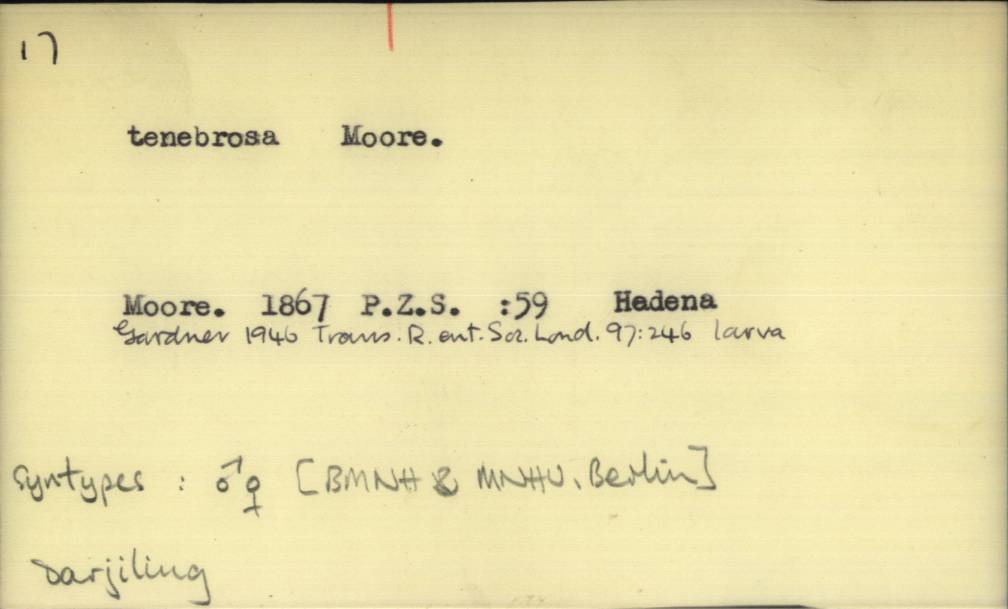 17
tenebrosa Moore.
Moore. 1867 P.Z.S. :59 Hadena
Gardner 1946 Trans. R. ent. Soc. Lond. 97:246 larva
Syntypes : ♂♀ [BMNH & MNHU, Berlin]
Darjiling